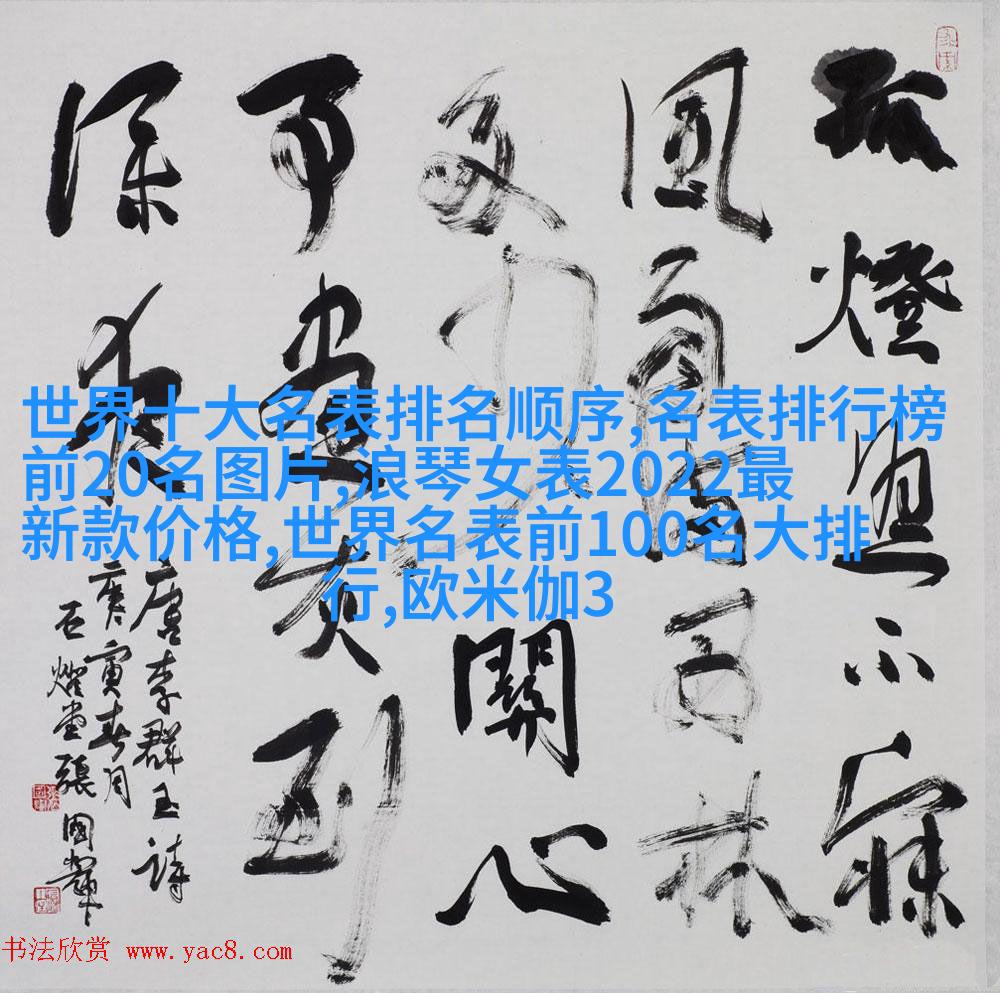 孤燈照不寐
風雨滿西林
多少關心
事書灰到
深夜
唐李群玉詩
庚寅春月
石燈堂張國輝
世界十大名表排名顺序,名表排行榜
前20名图片,浪琴女表2022最
新款价格,世界名表前100名大排
行,欧米伽3
书法欣赏 www.yac8.com